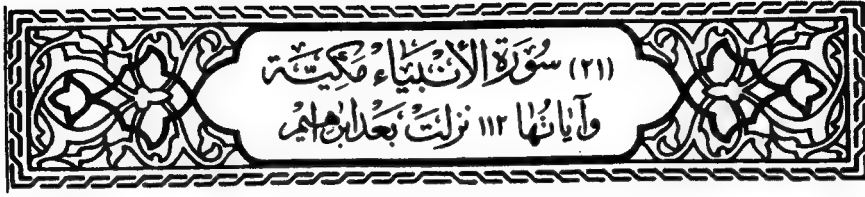 (٢١) سُورَةُ الأَنْبيَاءِ مَكِيَّة
وَآيَاتُهَا ١١٢ نَزلَتْ بَعْدَ إبْرَاهِيْم